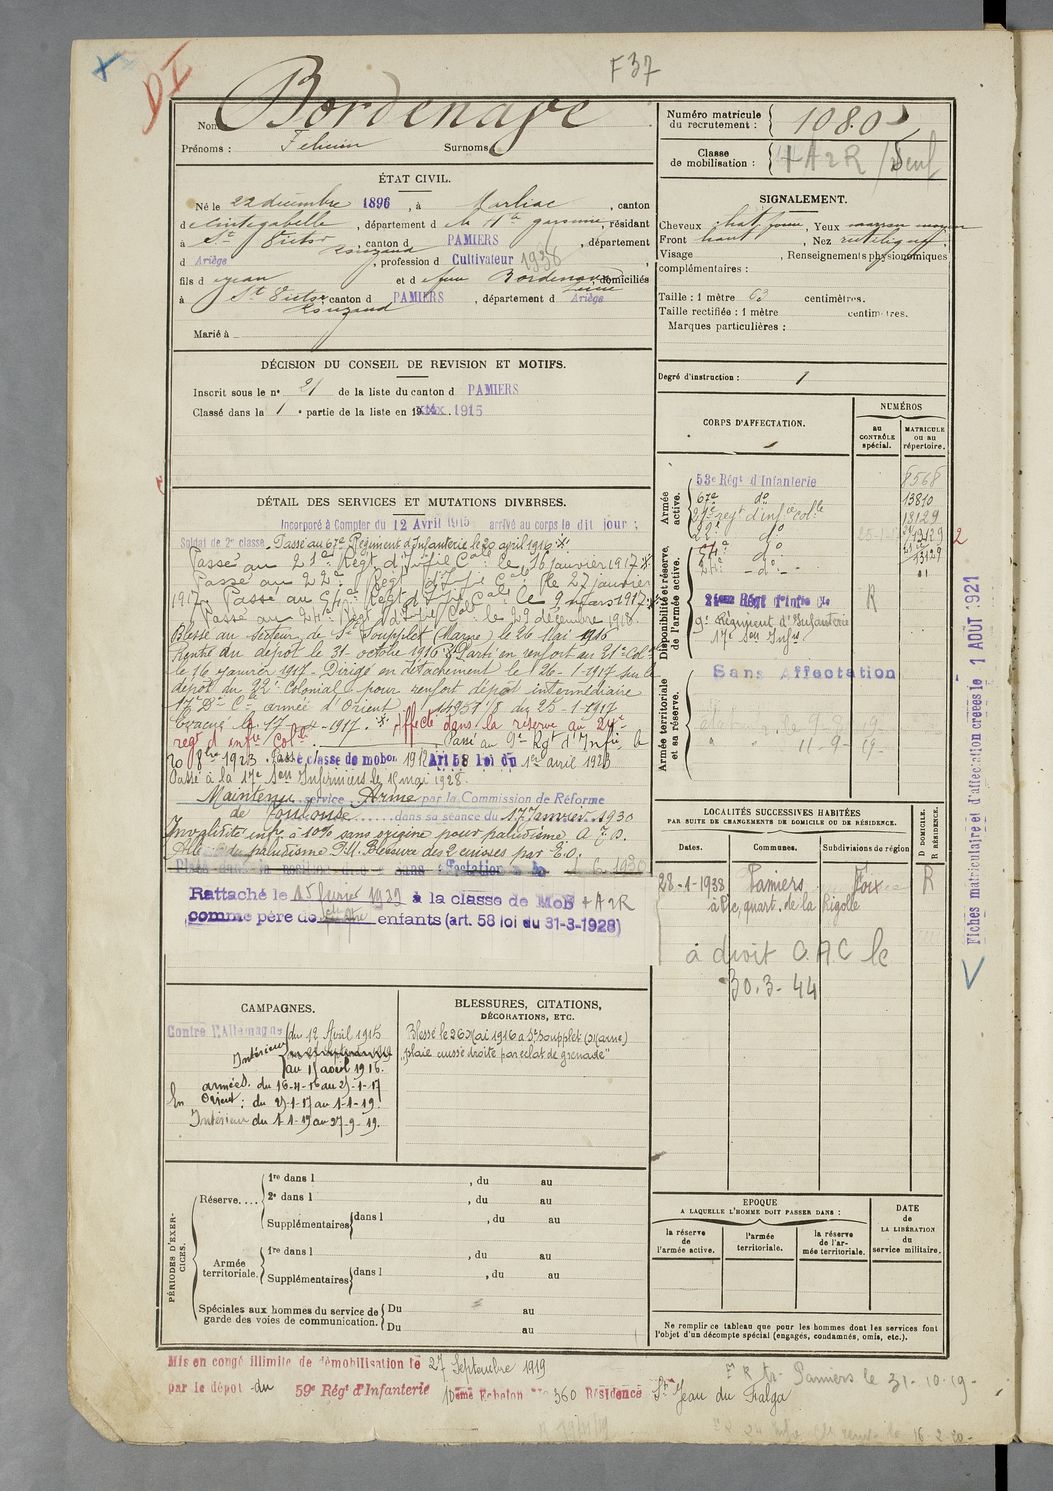 F37
DI
Nom Bordenave
Prénoms : Félicien Surnoms
Numéro matricule du recrutement : 1080
Classe de mobilisation : +A2R
ÉTAT CIVIL.
Né le 22 décembre 1896, à Marliac, canton
d Cintegabelle, département d la Hte garonne, résidant
à St Victor Rouzaud, canton d PAMIERS, département
d Ariège, profession d Cultivateur 1936
fils d Jean et d Bordenave, domiciliés
à St Victor Rouzaud canton d PAMIERS, département d Ariège
Marié à
SIGNALEMENT.
Cheveux chat. foncé, Yeux marron moyen
Front haut, Nez rectiligne,
Visage , Renseignements physionomiques
complémentaires :
Taille : 1 mètre 63 centimètres.
Taille rectifiée : 1 mètre centimètres.
Marques particulières :
Degré d'instruction : 1
DÉCISION DU CONSEIL DE REVISION ET MOTIFS.
Inscrit sous le n° 21 de la liste du canton d PAMIERS
Classé dans la 1 e partie de la liste en 19 1915
CORPS D'AFFECTATION.
NUMÉROS
au CONTRÔLE spécial.
MATRICULE ou au répertoire.
Armée active.
53e Régt d'Infanterie 8568
67e do 13840
21e regt d'infie colle 13129
22e do 13129 2
54e do 13129
24e - do - "
Disponibilité et réserve de l'armée active.
21eme Régt d'Infie R
9e Régiment d'Infanterie
17e Son Infrs
Sans Affectation
Armée territoriale et sa réserve.
11-9-19-
DÉTAIL DES SERVICES ET MUTATIONS DIVERSES.
Incorporé à Compter du 12 Avril 1915 arrivé au corps le dit jour ;
Soldat de 2e classe. Passé au 67e Régiment d'Infanterie le 20 avril 1916
Passé au 21e Régt d'Infie Cale le 16 janvier 1917
Passé au 22e Régt d'Infie Cale le 27 janvier
1917. Passé au 54e Régt d'Infie Cale le 9 mars 1917
Passé au 24e Régt d'Infie Colle le 29 décembre 1918
Blessé au Secteur de St Soupplet (Marne) le 26 Mai 1916
Rentré du dépôt le 31 octobre 1916 Parti en renfort au 21e Colal
le 16 Janvier 1917. Dirigé en détachement le 26-1-1917 sur le
dépôt du 22e Colonial pour renfort dépôt intermédiaire
17e Don Cale armée d'Orient 14951 1/8 du 25-1-1917
Evacué le 17 - 1917. Affecté dans la réserve au 24e
regt d'infie Colle. Passé au 9e Rgt d'Infie le
20 8bre 1923. Passé classe de mobon 1912 Art 58 loi du 1er avril 1923
Passé à la 17e Son Infirmiers le 15 mai 1928.
Maintenu service Armé par la Commission de Réforme
de Toulouse dans sa séance du 17 Janvier 1930
Invalidité infre à 10% sans origine pour paludisme A.F.O.
de paludisme P.M. Blessure des 2 cuisses par E.O.
Placé dans la position dite " Sans Affectation " le 1930
Rattaché le 15 fevrier 1932 à la classe de MoB +A2R
comme père de enfants (art. 58 loi du 31-3-1928)
LOCALITÉS SUCCESSIVES HABITÉES
PAR SUITE DE CHANGEMENTS DE DOMICILE OU DE RÉSIDENCE.
Dates. Communes. Subdivisions de région D DOMICILE. R RÉSIDENCE.
28-1-1938 Pamiers Foix R
quart. de la Rigole
à droit C.A.C le
30.3-44
CAMPAGNES.
Contre l'Allemagne du 12 Avril 1915
Intérieur
au 15 avril 1916.
armées. du 16-4-16 au 25-1-17
En Orient : du 25-1-17 au 1-1-19
Intérieur du 1-1-19 au 27-9-19.
BLESSURES, CITATIONS, DÉCORATIONS, ETC.
Blessé le 26 Mai 1916 à St Soupplet (Marne)
"plaie cuisse droite par éclat de grenade"
PÉRIODES D'EXERCICES.
Réserve....
1re dans l , du au
2e dans l , du au
Supplémentaires dans l , du au
Armée territoriale.
1re dans l , du au
Supplémentaires dans l , du au
Spéciales aux hommes du service de garde des voies de communication.
Du au
Du au
EPOQUE
A LAQUELLE L'HOMME DOIT PASSER DANS :
la réserve de l'armée active.
l'armée territoriale.
la réserve de l'armée territoriale.
DATE de LA LIBÉRATION du service militaire.
Ne remplir ce tableau que pour les hommes dont les services font
l'objet d'un décompte spécial (engagés, condamnés, omis, etc.).
Mis en congé illimité de démobilisation le 27 Septembre 1919
par le dépôt du 59e Régt d'Infanterie 10ème Echelon n° 360 Résidence St Jean du Falga
Pamiers le 31-10-19-
le 16-2-20-
Fiches matriculaire et d'affectation créées le 1 AOUT 1921